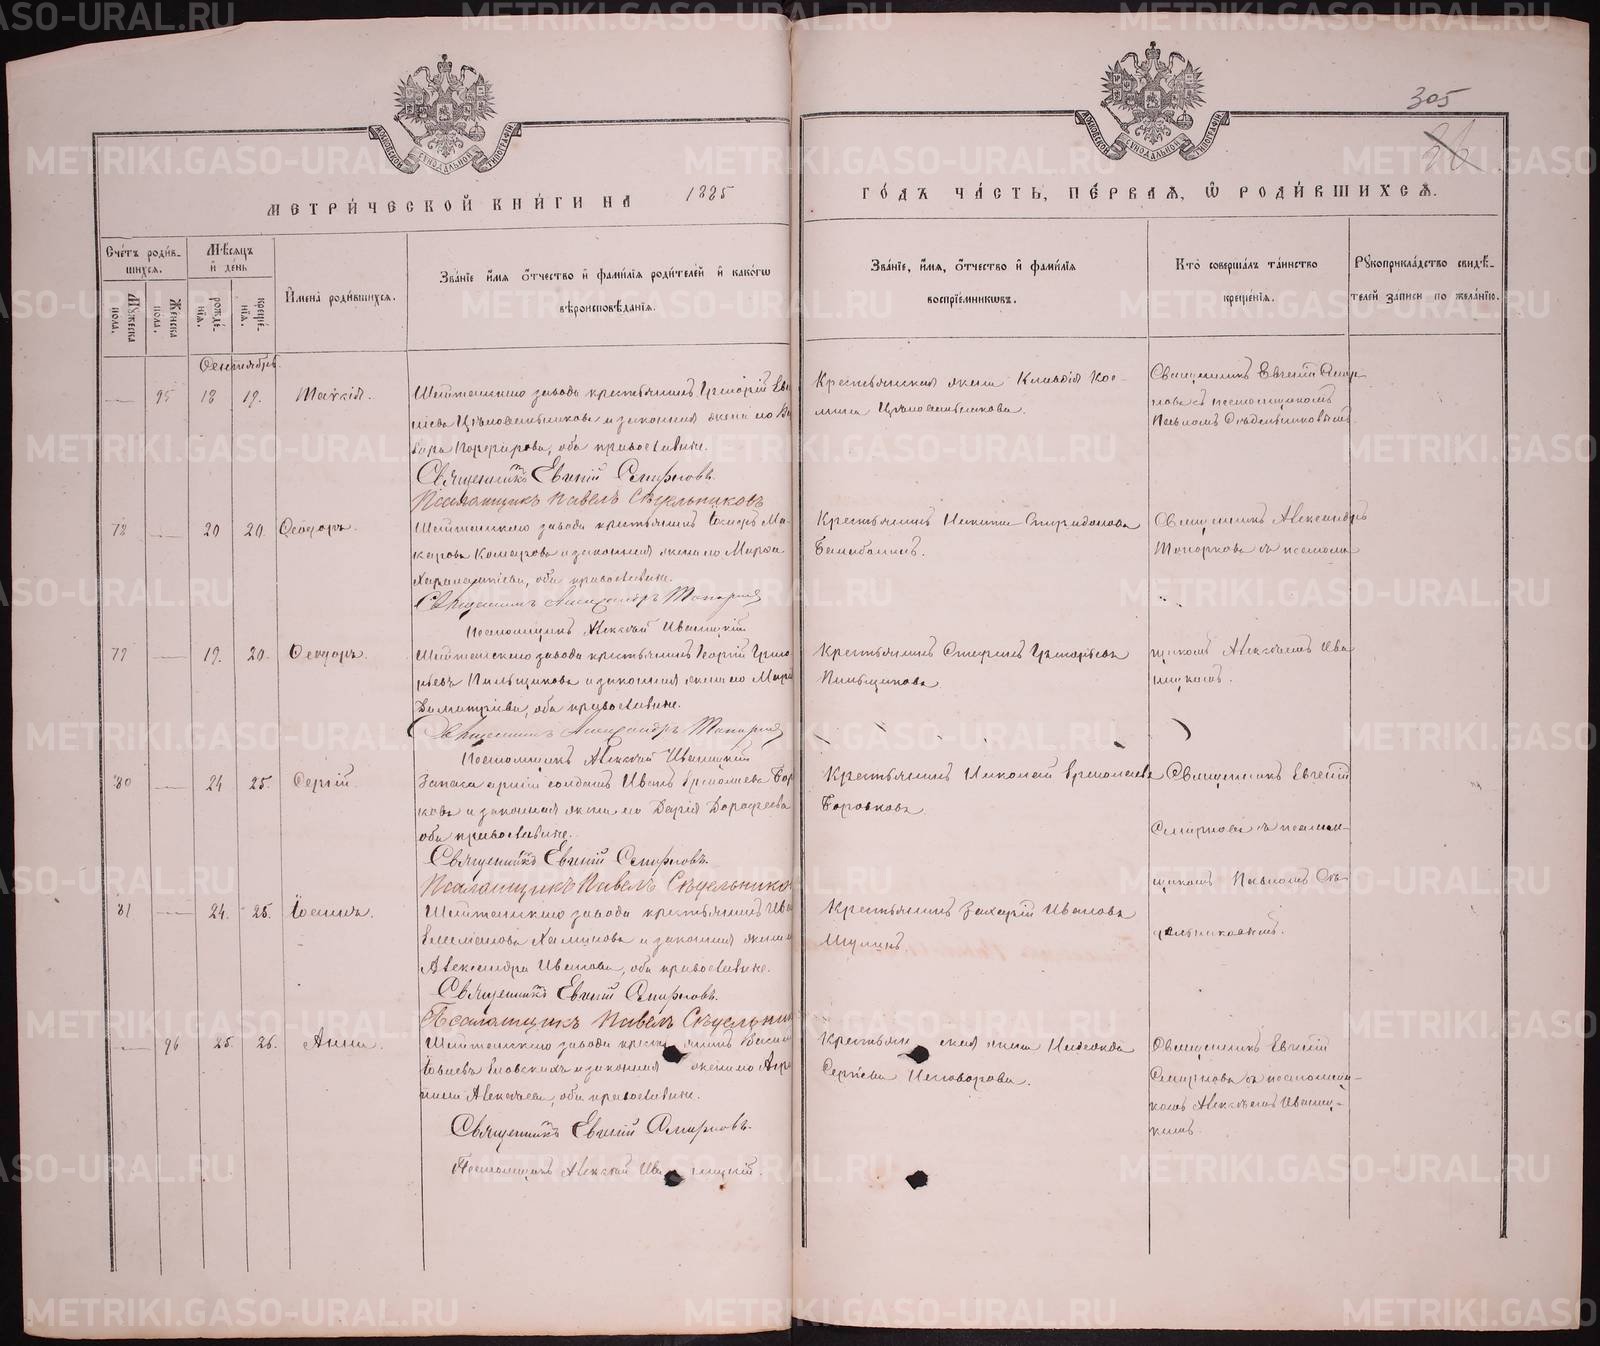 METRIKI.GASO-URAL.RU
МЕТРИ́ЧЕСКОЙ КНИ́ГИ НА 1885
ГО́ДЪ ЧА́СТЬ, ПЕ́РВАЯ, Ѿ РОДИ́ВШИХСѦ.
305
Сче́тъ роди́в-
шихся.
Мꙋжеска пола.
Женска пола.
Мѣ́сяцъ
и҆ де́нь
рожде́-
нїя.
креще́-
нїя.
И҆мена̀ роди́вшихся.
Зва́нїе и҆́мя ѻ҆́тчество и҆ фами́лїя роди́телей и҆ како́гѡ
вѣроисповѣ́данїя.
Зва́нїе, и҆́мя, ѻ҆́тчество и҆ фами́лїя
воспрїе́мникѡвъ.
Кто̀ соверша́лъ та́инство
креще́нїя.
Рꙋкоприкла́дство свидѣ́-
телей за́писи по жела́нїю.
Сентябрь
95 18 19.
Шайтанскаго завода крестьянинъ Григорій
и законная жена его
вара Порфирова, оба православные.
Священникъ Евгеній Смирновъ.
Псаломщикъ Павелъ Сѣдельниковъ
Крестьянская жена Клавдія Кос-
мина
Священникъ Евгеній Смир-
новъ съ псаломщикомъ
Павломъ Сѣдельниковымъ
78 20 20. Ѳеодоръ.
Шайтанскаго завода крестьянинъ Ма-
каровъ Комаровъ и законная жена его Марѳа
Харлампіева, оба православные.
Священникъ Александръ Топорковъ
Псаломщикъ Алексѣй Иваницкій
Крестьянинъ Никита Спиридоновъ
Балабанинъ.
Священникъ Александръ
Топорковъ съ псалом-
79 19. 20. Ѳеодоръ.
Шайтанскаго завода крестьянинъ Георгій Григо
рьевъ Пильщиковъ и законная жена его Марія
Димитріева, оба православные.
Священникъ Александръ Топорковъ
Псаломщикъ Алексѣй Иваницкій
Крестьянинъ Стефанъ Григорьевъ
Пильщиковъ.
щикомъ Алексѣемъ Ива
ницкимъ.
80 24 25. Сергій.
Запаса арміи солдатъ Иванъ Ермолаевъ Бор
ковъ и законная жена его Дарія Дороѳеева
оба православные.
Священникъ Евгеній Смирновъ.
Псаломщикъ Павелъ Сѣдельнико
Крестьянинъ Николай Ермолаевъ
Боровковъ.
Священникъ Евгеній
Смирновъ съ псалом-
щикомъ Павломъ Сѣ-
дельниковымъ.
81 24. 25. Іоаннъ.
Шайтанскаго завода крестьянинъ Ива
и законная жена
Александра Иванова, оба православные.
Священникъ Евгеній Смирновъ.
Псаломщикъ Павелъ Сѣдельник
Крестьянинъ Захарій Ивановъ
96 25. 26. Анна.
Шайтанскаго завода крестьянинъ Васил
и законная жена его Агри
пина Алексѣева, оба православные.
Священникъ Евгеній Смирновъ.
Псаломщикъ Алексѣй Иваницкій.
Крестьянская жена Надежда
Сергіева
Священникъ Евгеній
Смирновъ съ псаломщи-
комъ Алексѣемъ Иваниц-
кимъ.